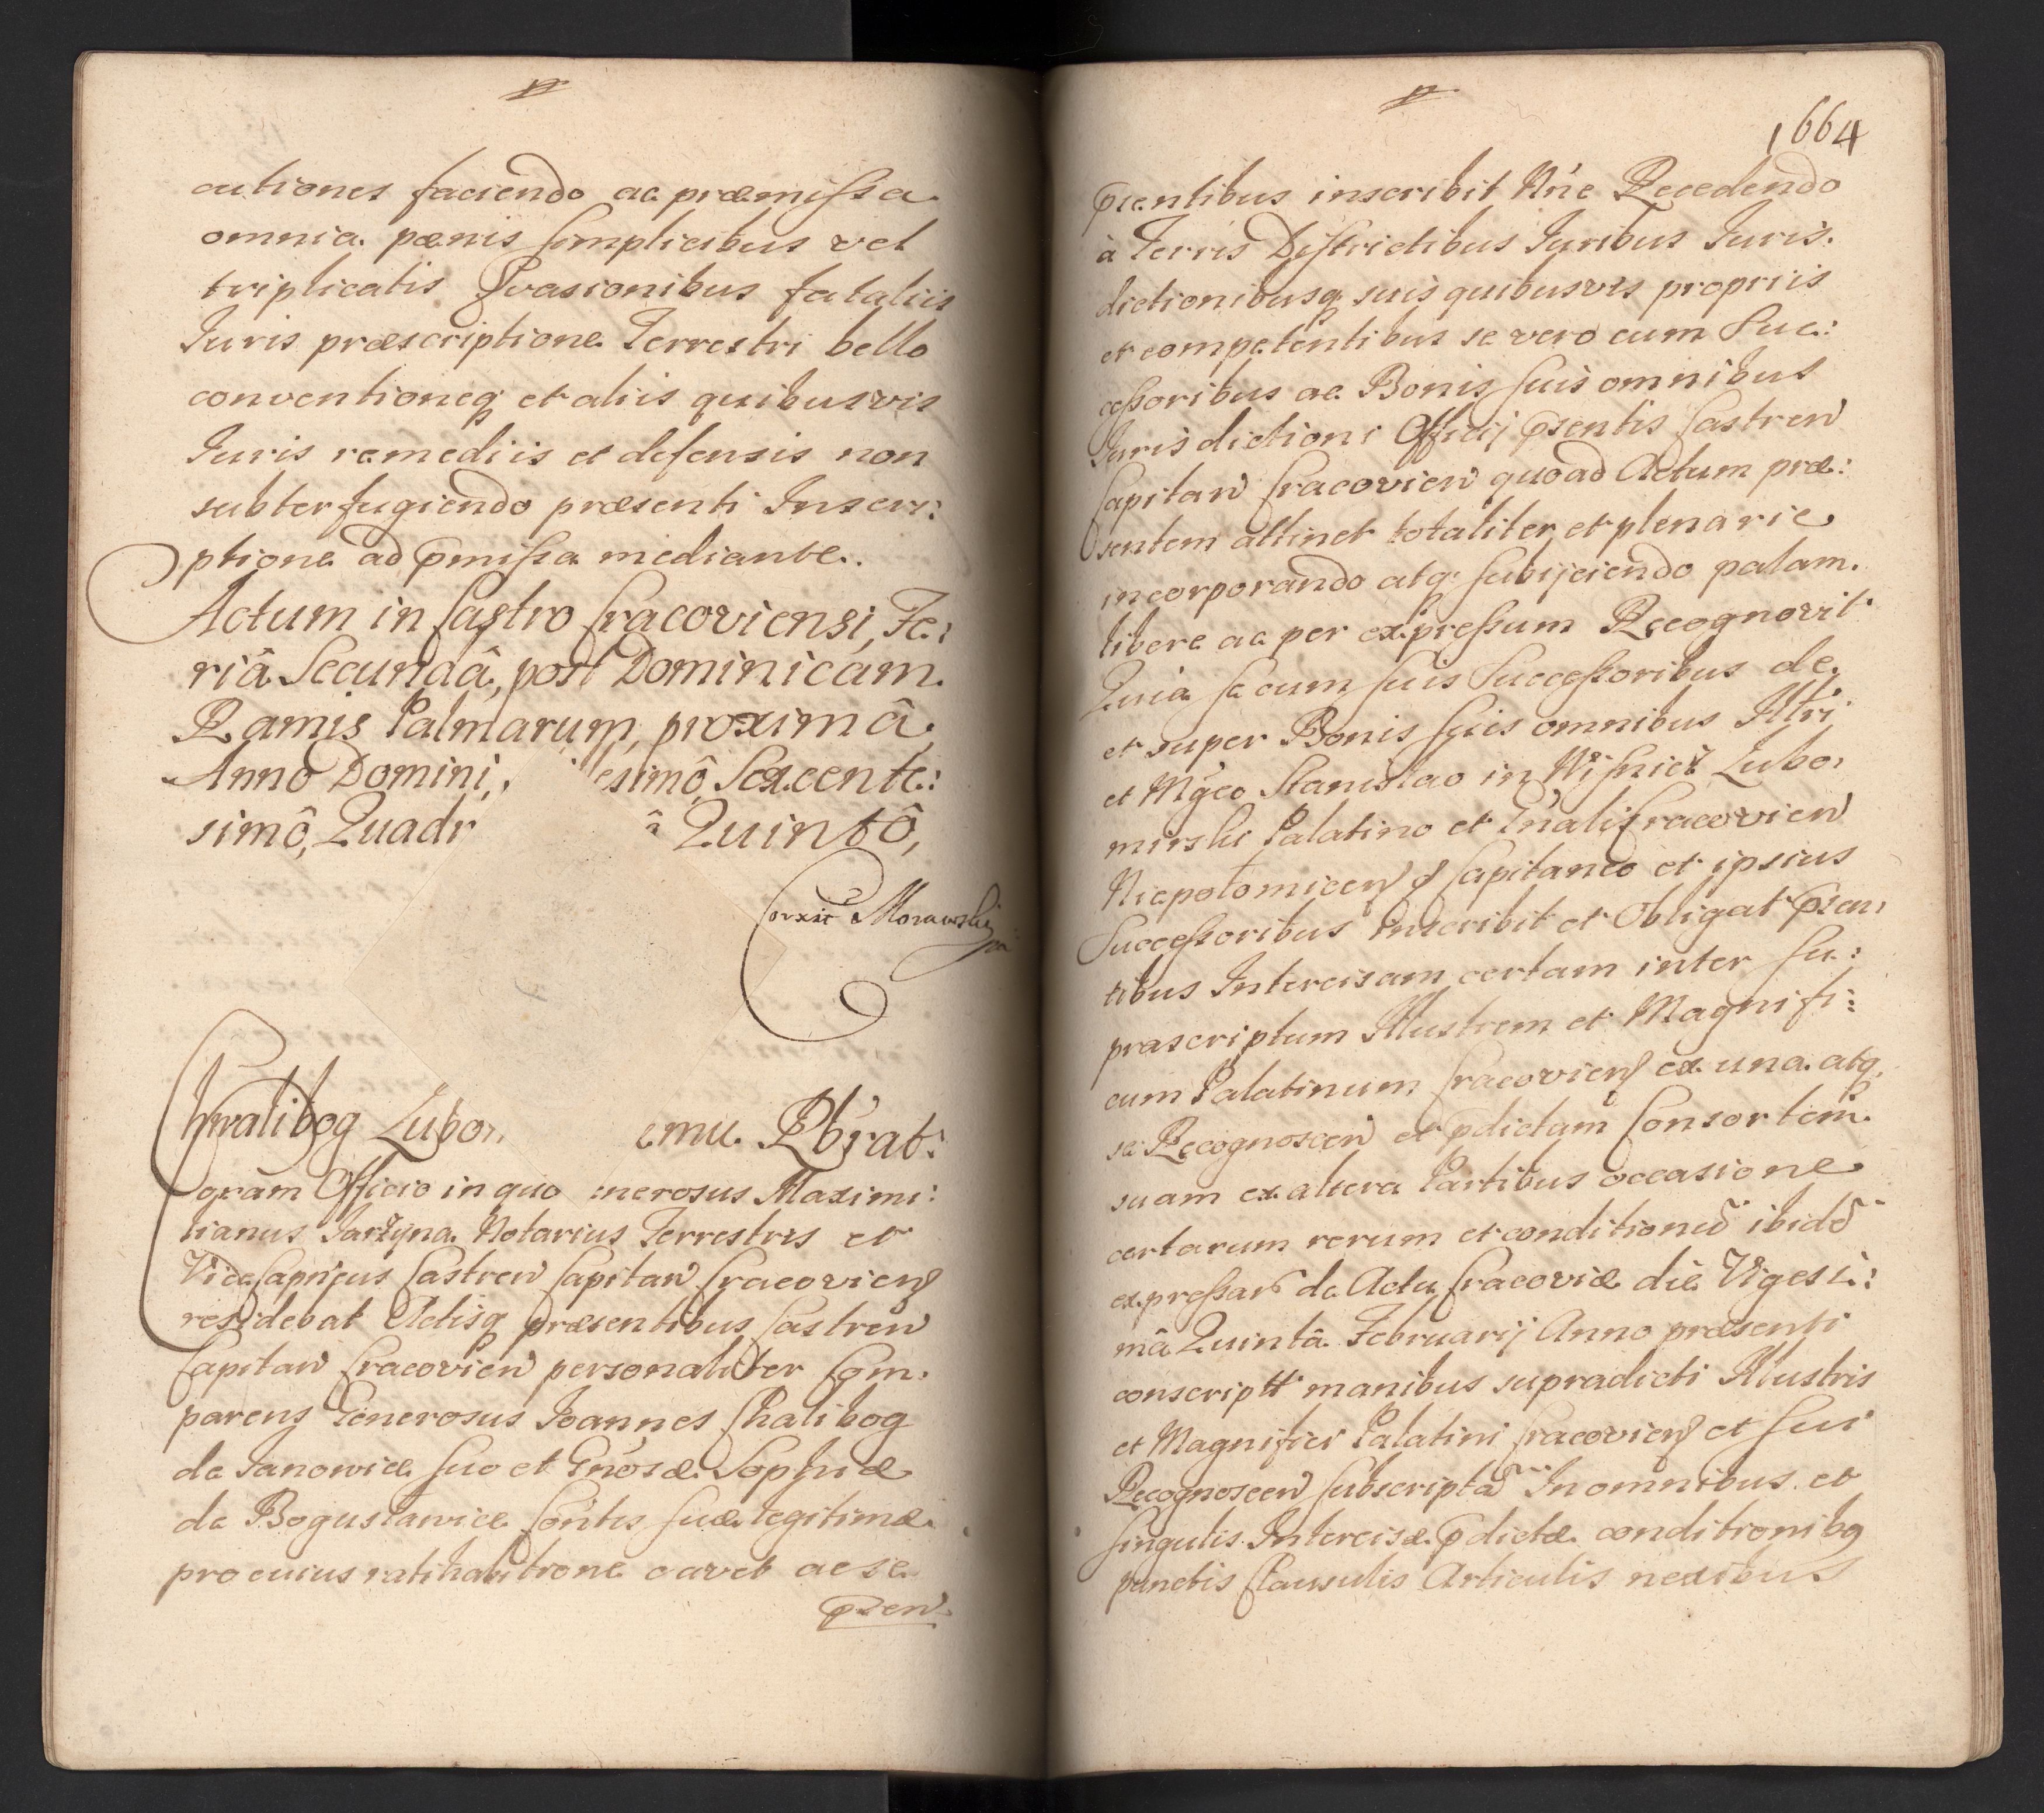 cutiones faciendo ac præmissa
omnia pænis simplicibus vel
triplicatis Evasionibus fataliis
Iuris præscriptione Terrestri bello
conventioneq et aliis quibusvis
Iuris remediis et defensis non
subterfugiendo præsenti Inscri:
ptione ad pmissa mediante.
Actum in Castro Cracoviensi, Fe:
riâ Secundâ, post Dominicam
Ramis Palmarum, proximâ
Anno Domini, esimô, Sexcente:
simô, Quadr Quintô,
Morawski
Chwalibog Lubo emu Rbrat:
Coram Officio in quo nerosus Maximi:
lianus Jarzyna Notarius Terrestris et
Vice Capneus Castren Capitan Cracovien
residebat Actisq præsentibus Castren
Capitan Cracovien personaliter Com:
parens Generosus Joannes Chalibog
de Janowice suo et Gnosæ Sophiæ
de Bogusławice Contis suæ legitimæ
pro cuius ratihabitione cavet ac se
pzen
1664
pzentibus inscribit Nne Recedendo
à Terris Districtibus Iuribus Iuris:
dictionibusq suis quibusvis propriis
et competentibus se vero cum Suc:
cessoribus ac Bonis suis omnibus
Iurisdictioni Officij psentis Castren
Capitan Cracovien quoad Actum præ:
sentem attinet totaliter et plenarie
incorporando atq subijciendo palam
libere ac per expressum Recognovit
Quia se cum suis Successoribus de
et super Bonis suis omnibus Illri
et Mgco Stanislao in Wisnicz Lubo:
mirski Palatino et Gnali Cracovien
Niepolomicen Capitaneo et ipsius
Successoribus inscribit et Obligat pzen:
tibus Intercisam certam inter se:
præscriptum Illustrem et Magnifi:
cum Palatinum Cracovien ex una atq
se Recognoscen et pdictam Consortem
suam ex altera Partibus occasione
certarum rerum et conditionu ibid
expressar de Actu Cracoviæ die Vigesi:
mâ Quintâ Februarij Anno præsenti
conscript manibus supradicti Illustris
et Magnifici Palatini Cracovien et sui
Recognoscen subscripta In omnibus et
singulis Intercisæ pdictæ conditionibq
punctis Clausulis Articulis nexibus